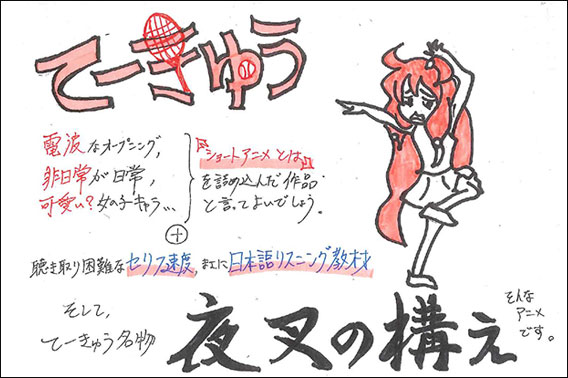 てーきゅう
電波なオープニング,
非日常が日常,
可愛い?女の子キャラ…
『ショートアニメとは』
を詰め込んだ作品
と言ってよいでしょう.
+
聴き取り困難なセリフ速度,まさに日本語リスニング教材
そして,
てーきゅう名物
夜叉の構え
そんな
アニメ
です。